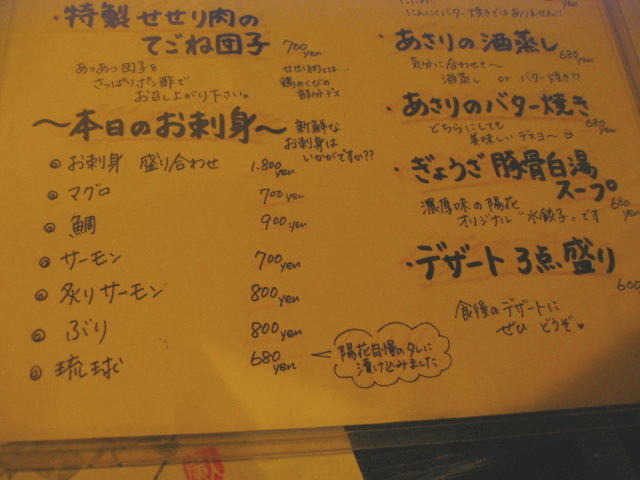 ・特製 せせり肉の
てごね団子 700yen
あつあつ団子を
さっぱりポン酢で
お召し上がり下さい。
せせり肉とは…
鶏のくびの
部分デス
～本日のお刺身～
新鮮な
お刺身は
いかがですか??
◎ お刺身 盛り合わせ 1.800yen
◎ マグロ 700yen
◎ 鯛 900yen
◎ サーモン 700yen
◎ 炙りサーモン 800yen
◎ ぶり 800yen
◎ 琉球 680yen
陽花自慢のタレに
漬け込みました
にんにくバター焼きではありません!!
・あさりの酒蒸し 680yen
気分に合わせて～
酒蒸し or バター焼き??
・あさりのバター焼き 680yen
どちらにしても
美味しいデスヨ～
・ぎょうざ 豚骨白湯
スープ 680yen
濃厚味の陽花
オリジナル"水餃子"です
・デザート 3点盛り 600
食後のデザートに
ぜひ どうぞ♥